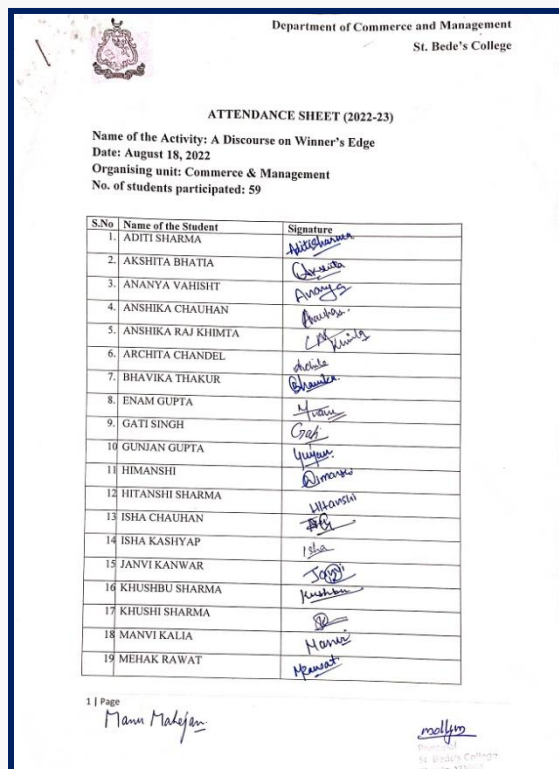 Department of Commerce and Management
St. Bede's College
ATTENDANCE SHEET (2022-23)
Name of the Activity: A Discourse on Winner's Edge
Date: August 18, 2022
Organising unit: Commerce & Management
No. of students participated: 59
S.No Name of the Student Signature
1. ADITI SHARMA AditiSharma
2. AKSHITA BHATIA Akshita
3. ANANYA VAHISHT Ananya
4. ANSHIKA CHAUHAN
5. ANSHIKA RAJ KHIMTA Khimta
6. ARCHITA CHANDEL Archita
7. BHAVIKA THAKUR Bhavika
8. ENAM GUPTA
9. GATI SINGH Gati
10 GUNJAN GUPTA Gunjan
11 HIMANSHI Himanshi
12 HITANSHI SHARMA Hitanshi
13 ISHA CHAUHAN
14 ISHA KASHYAP Isha
15 JANVI KANWAR Janvi
16 KHUSHBU SHARMA Khushbu
17 KHUSHI SHARMA
18 MANVI KALIA Manvi
19 MEHAK RAWAT MRawat
1 | Page
Manu Mahajan
Principal
St. Bede's College